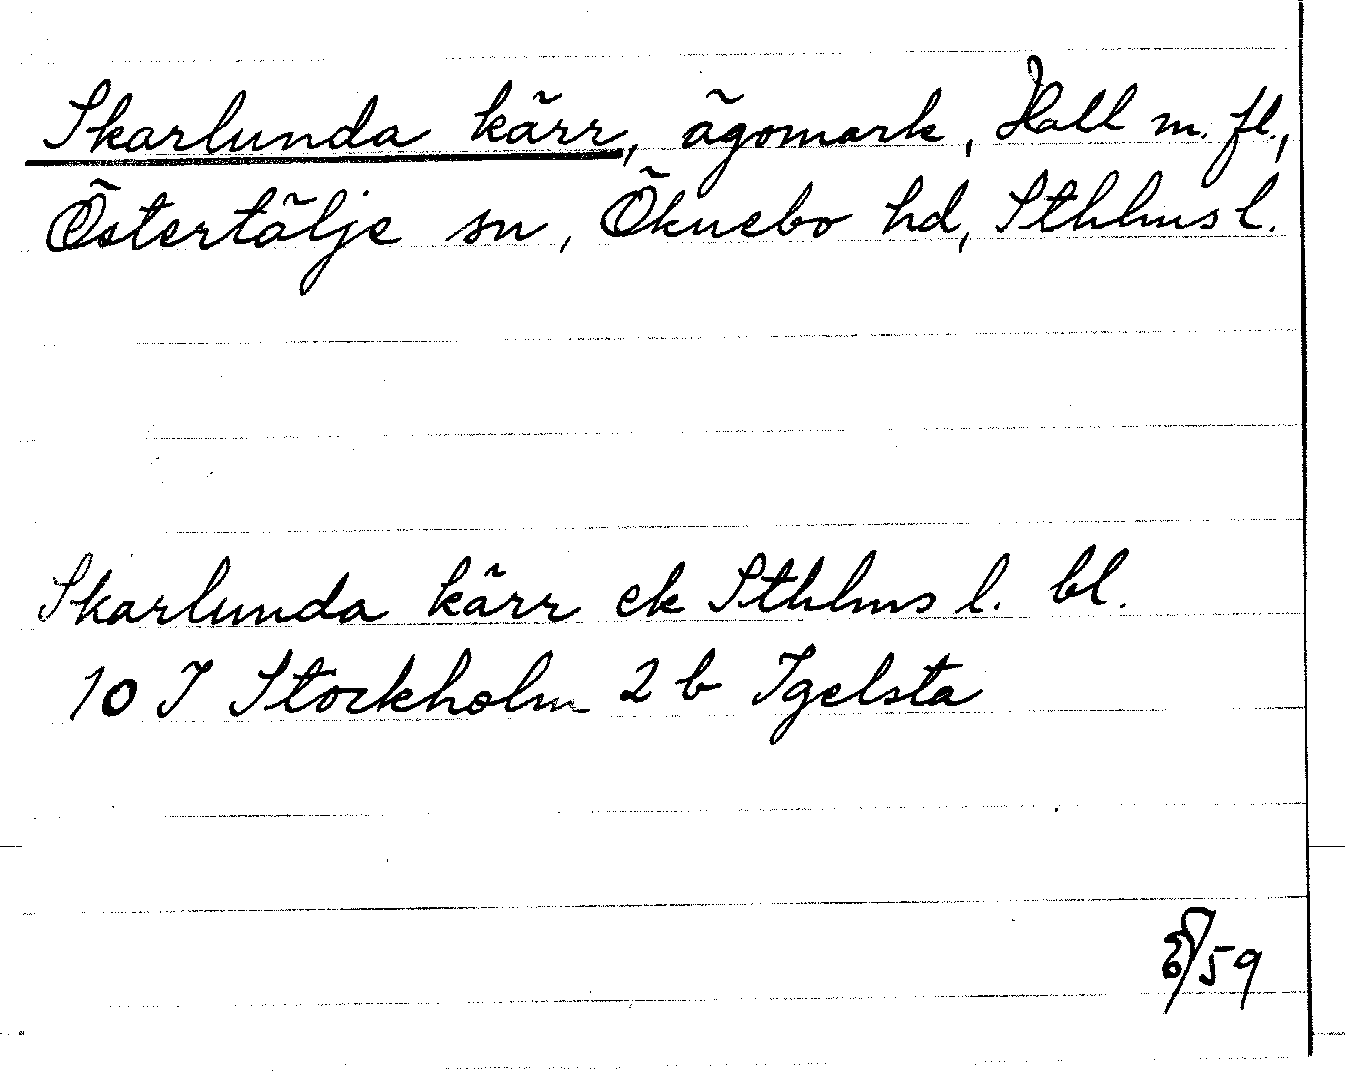 Skarlunda kärr, ägomark, Hall m. fl.,
Östertälje sn, Öknebo hd, Sthlms l.
Skarlunda kärr ek Sthlms l. bl.
10 I Stockholm 2 b Igelsta
/59